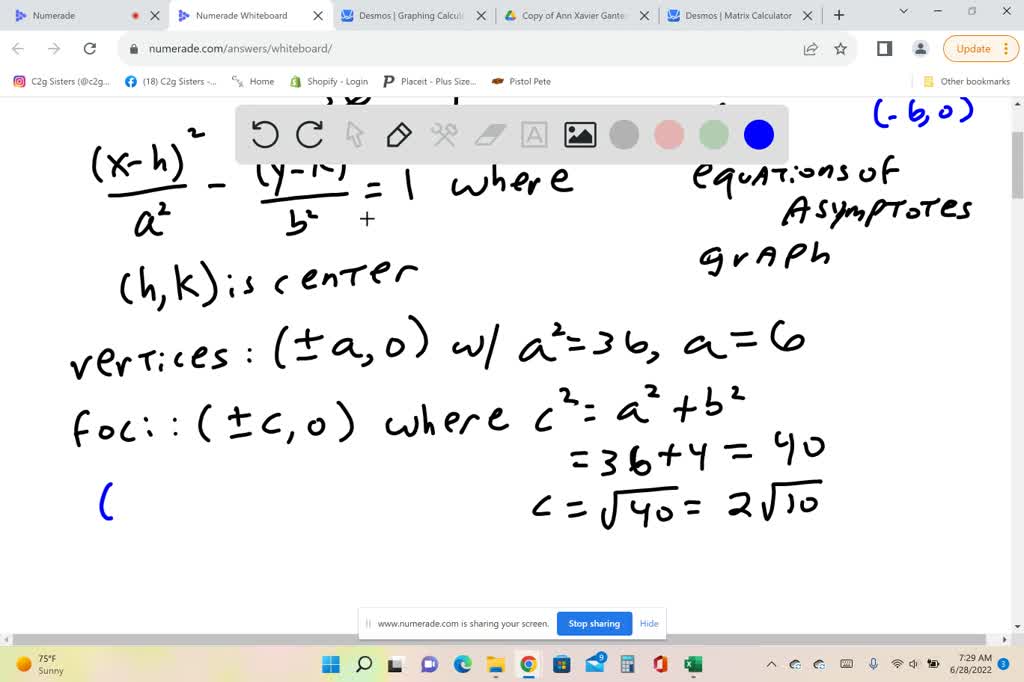 Numerade
Numerade Whiteboard
Desmos | Graphing Calcul
Copy of Ann Xavier Gante
Desmos | Matrix Calculator
numerade.com/answers/whiteboard/
Update
C2g Sisters (@c2g...
(18) C2g Sisters -...
Home
Shopify - Login
Placeit - Plus Size...
Pistol Pete
Other bookmarks
(-6,0)
(x-h)² / a² - (y-k) / b² = 1 where
equations of
Asymptotes
graph
(h,k) is center
vertices: (±a,0) w/ a²=36, a=6
foci: : (±c,0) where c²=a²+b²
=36+4=40
(
c=√40=2√10
www.numerade.com is sharing your screen.
Stop sharing
Hide
75°F
Sunny
9
7:29 AM
6/28/2022
3